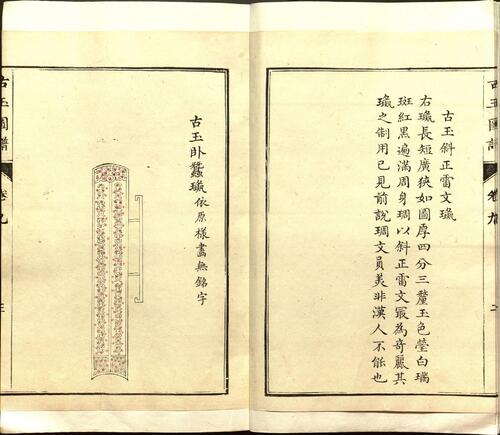 古玉圖譜
卷九
二
古玉斜正雷文璏
右璏長短廣狹如圖厚四分三釐玉色瑩白瑞
斑紅黑遍滿周身琱以斜正雷文最為奇麗其
璏之制用已見前說琱文員美非漢人不能也
古玉臥蠶璏依原樣畫無銘字
古玉圖譜
卷九
三